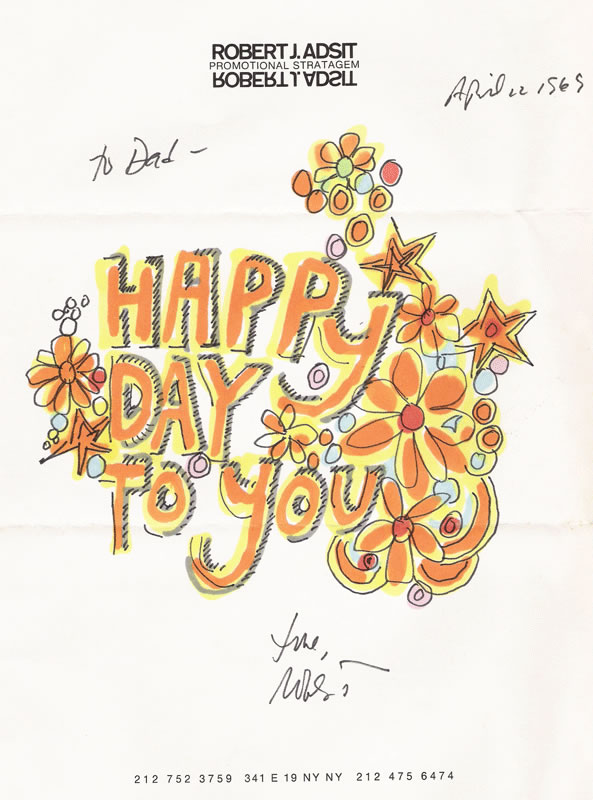 ROBERT J. ADSIT
PROMOTIONAL STRATAGEM
ROBERT J. ADSIT
April 22 1969
to Dad —
HAPPY
DAY
TO YOU
Love,
212 752 3759 341 E 19 NY NY 212 475 6474